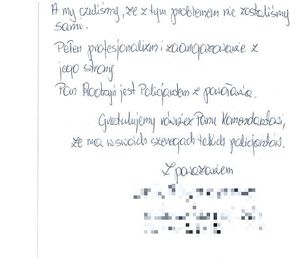 A my czuliśmy, że z tym problemem nie zostaliśmy
sami.
Pełen profesjonalizm i zaangażowanie z
jego strony
Pan Rodrygi jest Policjantem z powołania.
Gratulujemy również Panu Komendantowi,
że ma w swoich szeregach takich policjantów.
Z poważaniem